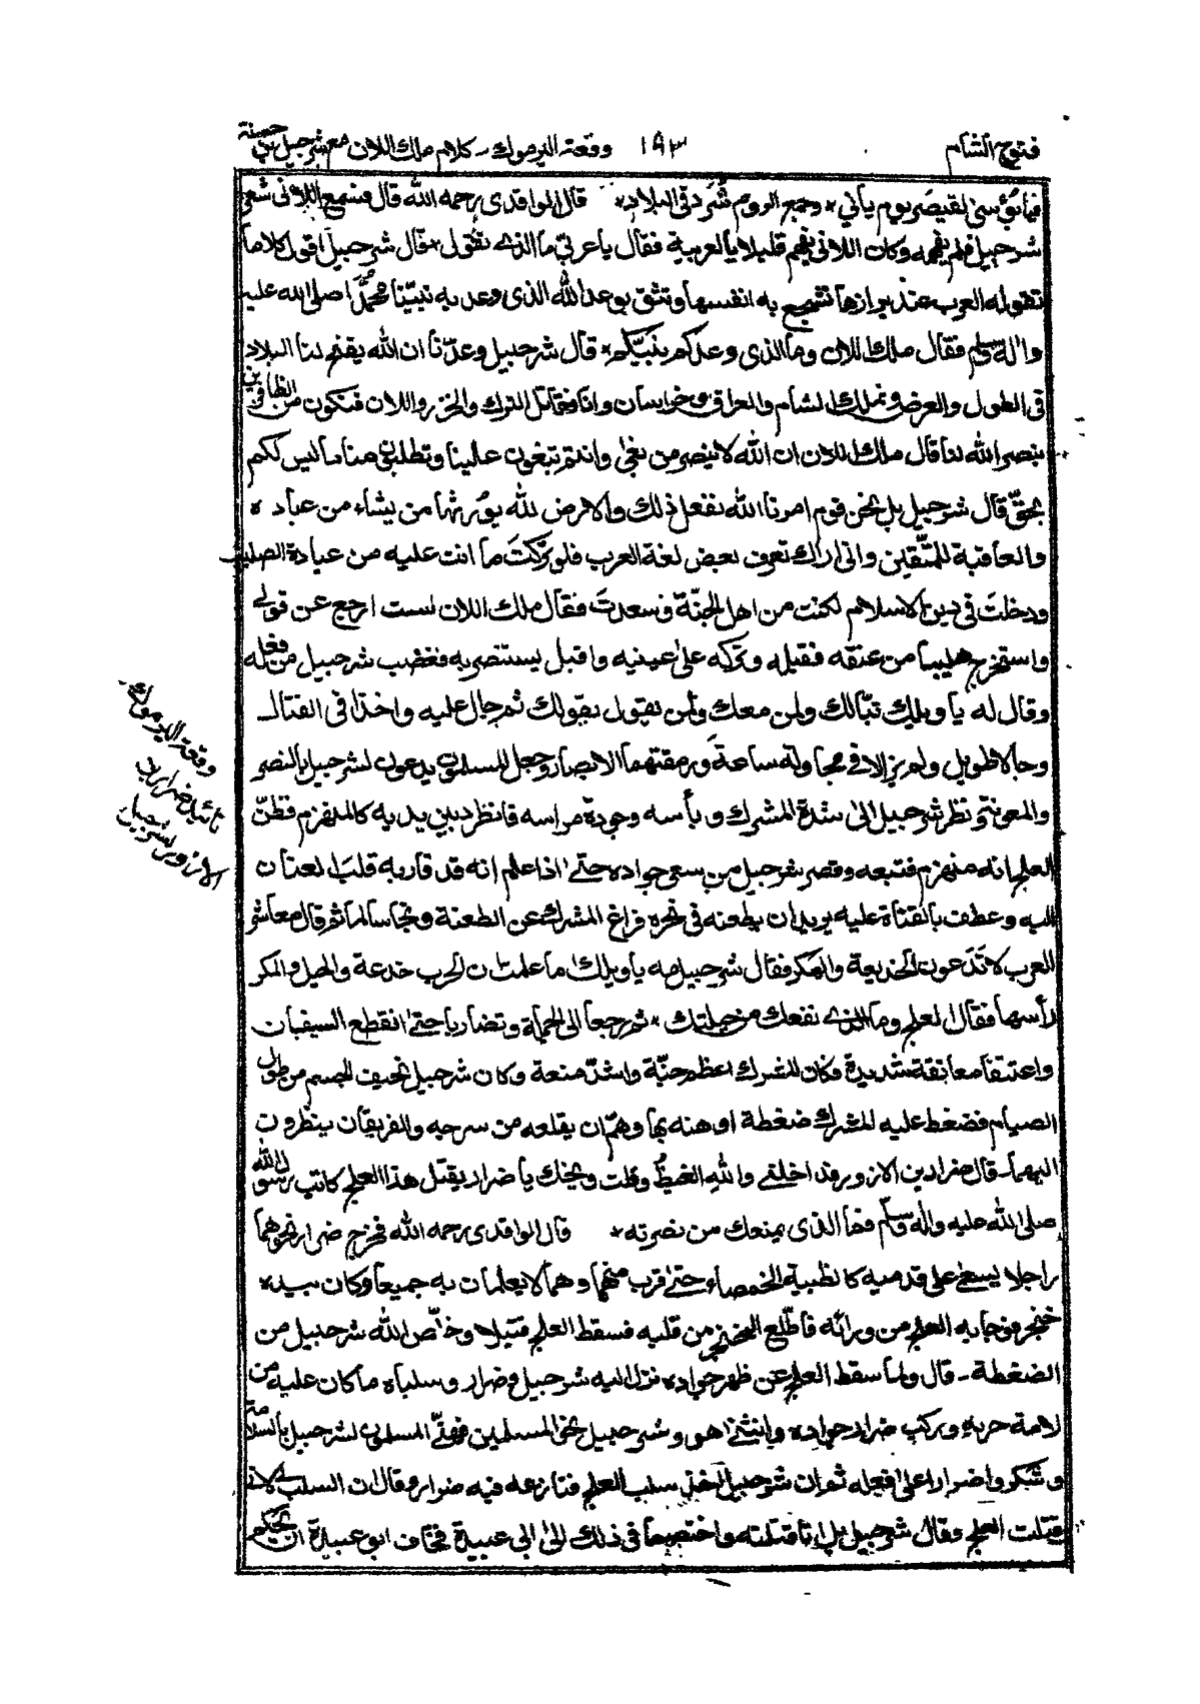 فتوح الشام ١٩٣ وقعة اليرموك - كلام ملك اللان مع شرحبيل بن حسنة
فما بؤسى لقيصر يوم يأتي * وجمع الروم شرد في البلاد * قال الواقدي رحمه الله قال فسمع اللاني شعر
شرحبيل فلم يفهمه وكان اللاني يفهم قليلا بالعربية فقال يا عربي ما الذي تقول * قال شرحبيل اقول كلاما
تقوله العرب عند برازها تشجع به انفسها وتثق بوعد الله الذي وعد به نبينا محمدا صلى الله عليه
واله وسلم فقال ملك اللان وما الذي وعدكم بنبيكم * قال شرحبيل وعدنا ان الله يفتح لنا البلاد
في الطول والعرض ونملك الشام والعراق وخراسان وانا نقاتل الترك والخزر واللان فنكون من الظافرين
بنصر الله لنا قال ملك اللان ان الله لا ينصر من بغى وانتم تبغون علينا وتطلبون منا ما ليس لكم
بحق قال شرحبيل بل نحن قوم امرنا الله نفعل ذلك والارض لله يورثها من يشاء من عباده
والعاقبة للمتقين واني اراك تعرف بعض لغة العرب فلو تركت ما انت عليه من عبادة الصليب
ودخلت في دين الاسلام لكنت من اهل الجنة وسعدت فقال ملك اللان لست ارجع عن قولي
واستخرج صليبا من عنقه فقبله وتركه على عينيه واقبل يستنصر به فغضب شرحبيل من فعله
وقال له يا ويلك تبا لك ولمن معك ولمن يقول بقولك ثم جال عليه واخذا في القتال
وجالا طويل ولم يزالا في مجاولة ساعة ورمقتهما الابصار وجعل المسلمون يدعون لشرحبيل بالنصر
والمعونة ونظر شرحبيل الى شدة المشرك وبأسه وجودة مراسه فانطرد بين يديه كالمنهزم فظن
العلج انه منهزم فتبعه وقصر شرحبيل من سعي جواده حتى اذا علم انه قد قاربه قلب لعنان
اليه وعطف بالقناة عليه يريد ان يطعنه في نحره فراغ المشرك عن الطعنة ونجا سالما ثم قال معاشر
العرب لا تدعون الخديعة والمكر فقال شرحبيل مه يا ويلك اما علمت ان الحرب خدعة والحيل والمكر
رأسها فقال العلج وما الذي نفعك من حيلتك * ثم رجعا الى الحملة وتضاربا حتى انقطع السيفان
واعتنقا معانقة شديدة فكان المشرك اعظم جثة واشد منعة وكان شرحبيل نحيف الجسم من طول
الصيام فضغط عليه المشرك ضغطة اوهنه بها وهم ان يقلعه من سرجه والفريقان ينظرون
اليهما - قال ضرار بن الازور فداخلني والله الغيظ وقلت ويحك يا ضرار يقتل هذا العلج كاتب رسول الله
صلى الله عليه واله وسلم فما الذي يمنعك من نصرته * قال الواقدي رحمه الله فخرج ضرار نحوهما
راجلا يسعى على قدميه كالظبية الخمصاء حتى قرب منهما وهما لا يعلمان به جميعا وكان بيده
خنجر فوجا به العلج من ورائه فاطلع الخنجر من قلبه فسقط العلج قتيلا وخلص الله شرحبيل من
الضغطة - قال ولما سقط العلج عن ظهر جواده نزل اليه شرحبيل وضرار وسلباه ما كان عليه من
لامة حربه وركب ضرار جواده وانثنى هو وشرحبيل نحو المسلمين فهنّى المسلمون لشرحبيل بالسلامة
وشكروا ضرارا على فعله ثم ان شرحبيل اخذ سلب العلج فنازعه فيه ضرار وقال ان السلب لي لاني
قتلت العلج وقال شرحبيل بل انا قتلته واختصما في ذلك الى ابي عبيدة فخاف ابو عبيدة ان يحكم
وقعة اليرموك
تائيد ضرار بن
الازور لشرحبيل